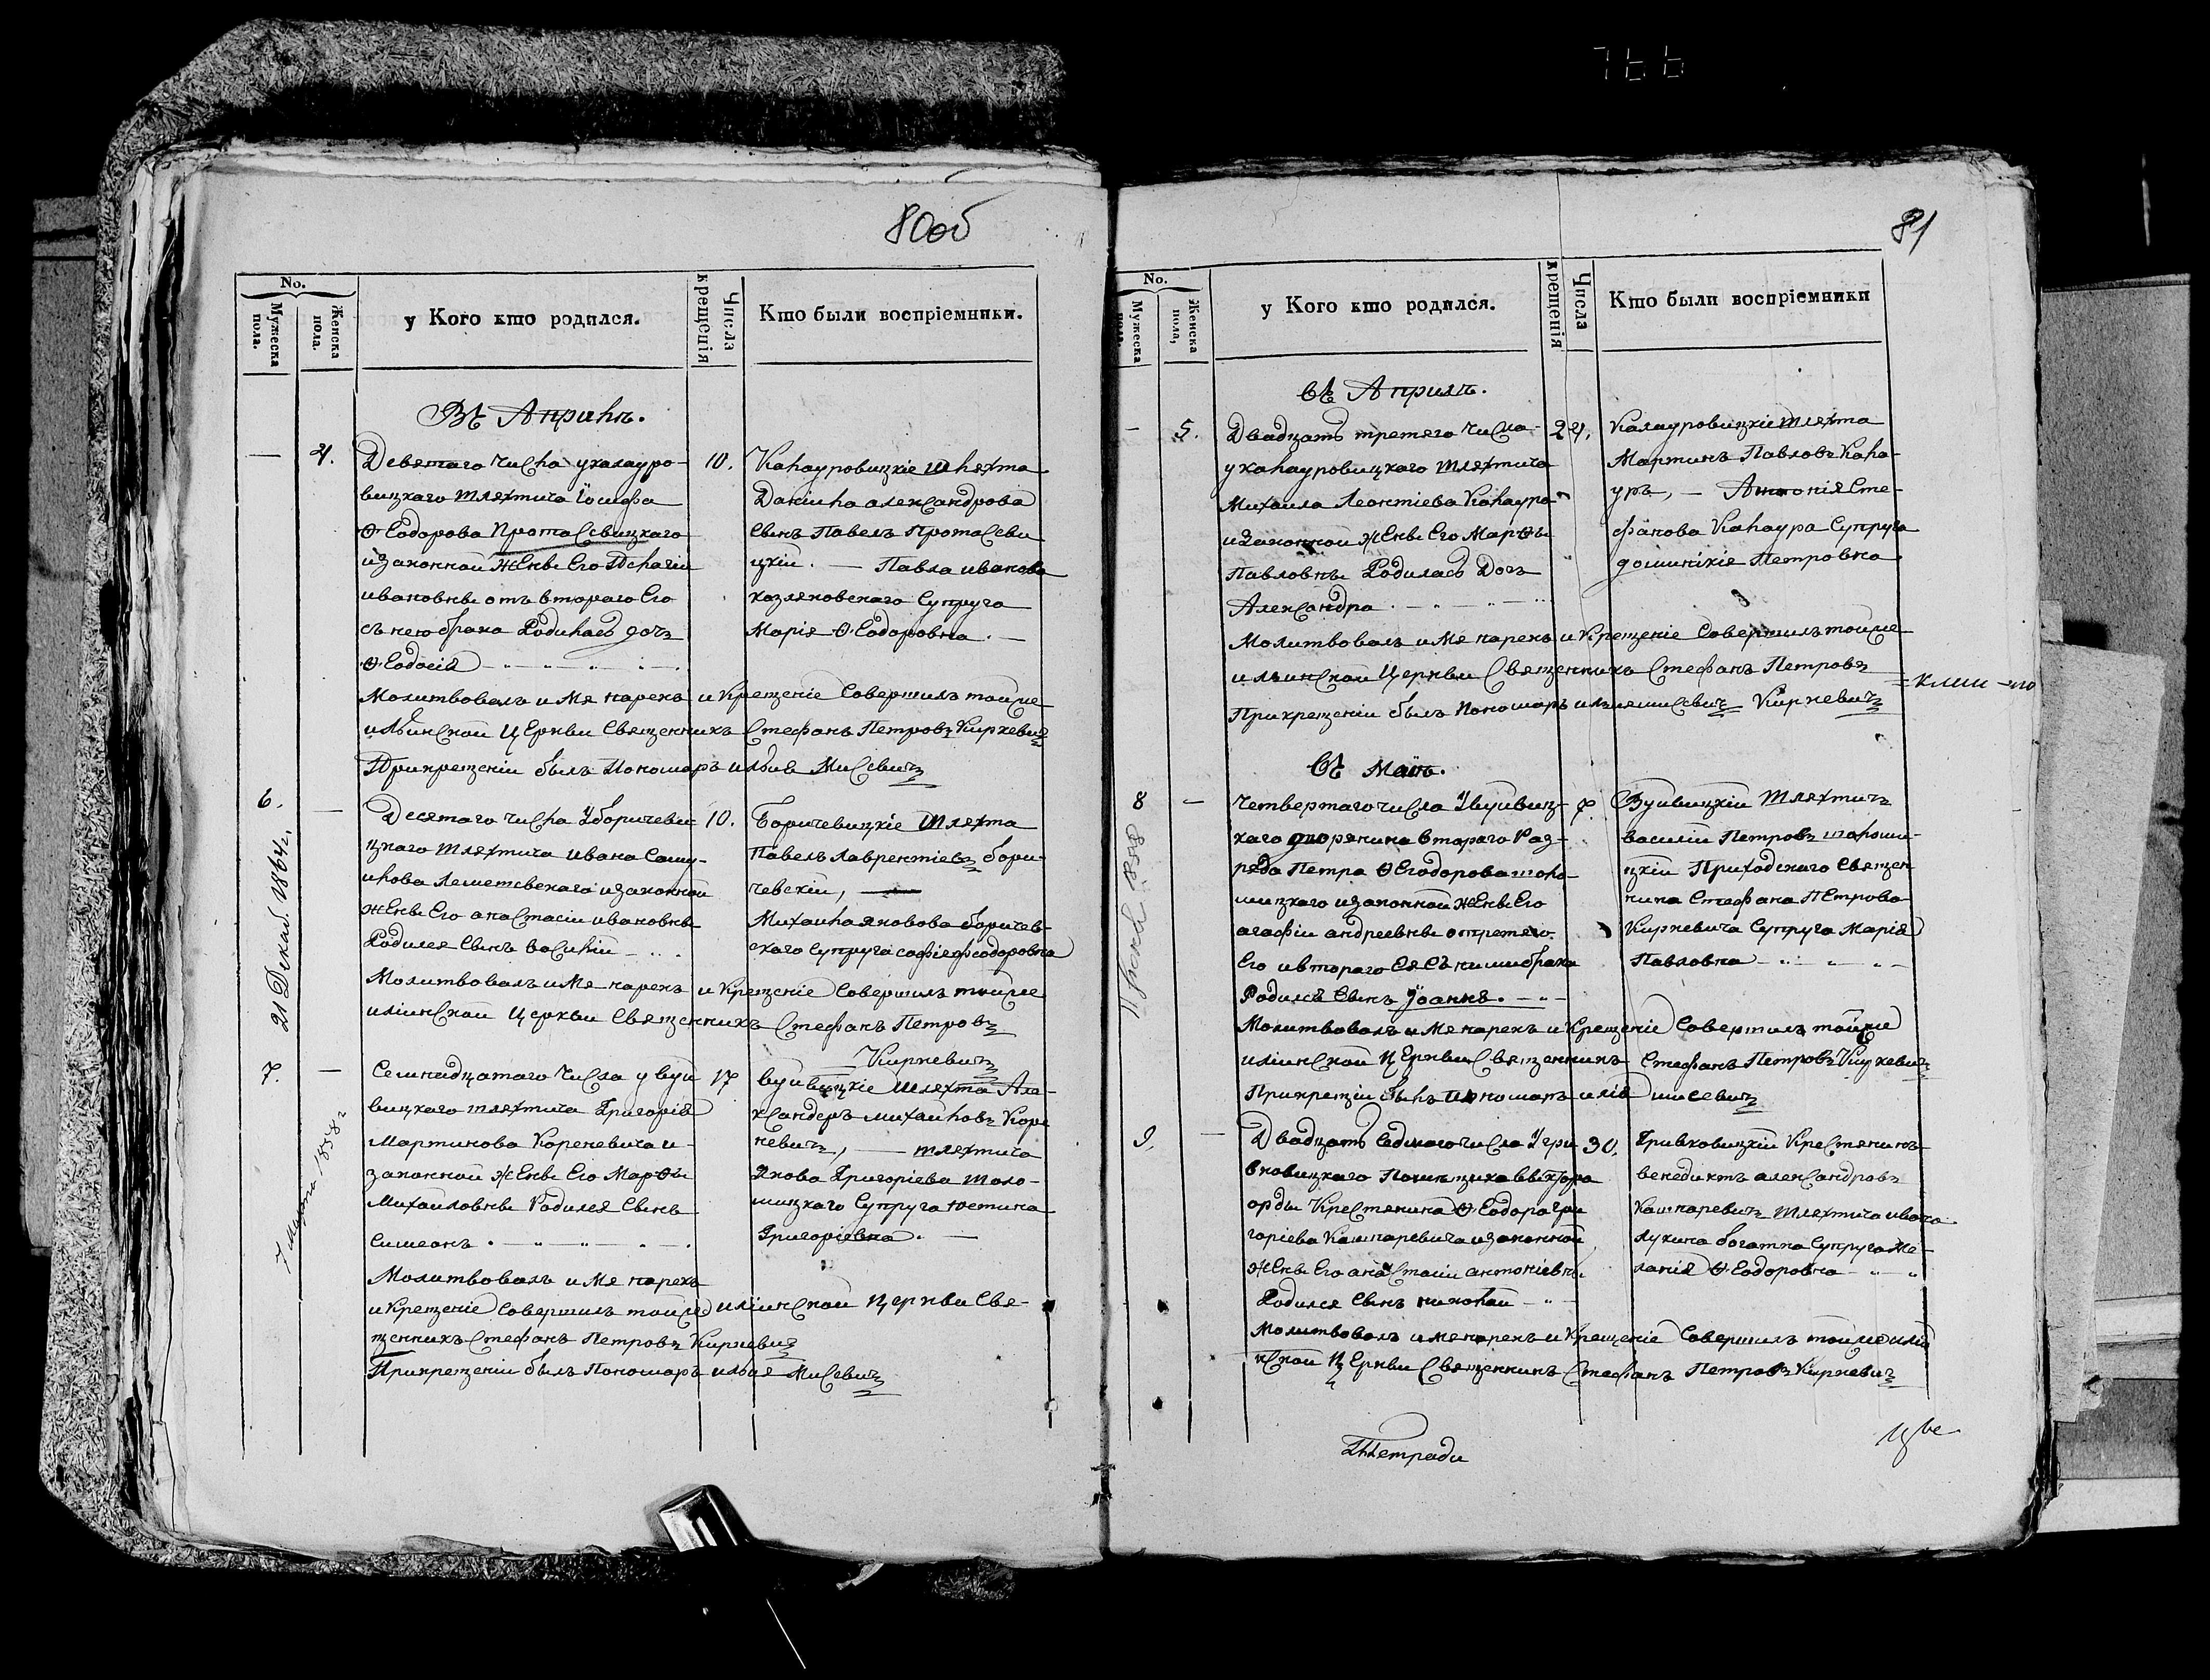 80об
No.
Мужеска пола.
Женска пола.
у Кого кто родился.
Числа крещенія
Кто были воспріемники.
Въ Априлѣ.
— 4. Девятаго числа укалауро-
вицкаго шляхтича Іосифа
Ѳеодорова Протасевицкаго
изаконной жены Его Пелагіи
ивановны отъ втораго Его
съ нею брака Родилась дочь
Ѳеодосія
10. Калауровицкіе шляхта
Даніила александрова
Сынъ Павелъ Протасеви
цкій. — Павла иванова
козляковскаго Супруга
Марія Ѳеодоровна. —
Молитвовалъ имя нарекъ и Крещеніе Совершилъ тойже
ильинской Церкви Священникъ Стефанъ Петровъ Киркевичъ
Прикрещеніи былъ Пономаръ илья Мисевичъ
6. — Десятаго числа Уборичеви
цкаго шляхтича ивана Саму-
илова изаконной
жены Его анастасіи ивановны
Родился Сынъ василій
10. Боричевицкіе шляхта
Павелъ Лаврентіевъ бори-
чевскій, —
Михаила яковова боричев-
скаго Супруга софія феодоровна
Молитвовалъ имя нарекъ и Крещеніе Совершилъ тойже
иліинской Церкви Священникъ Стефанъ Петровъ
Киркевичъ
21 Декаб. 1864 г.
7. — Семнадцатаго числа у вуй
вицкаго шляхтича Григорія
Мартинова Кореневича и-
законной жены Его Марѳы
Михайловны Родился Сынъ
Симеонъ.
17 вуйвицкіе шляхта Але-
ксандеръ михайловъ Коре
невичъ, — шляхтича
Якова Григоріева шоло-
мицкаго Супруга юстина
Григоріевна. —
7 марта 1858 г
Молитвовалъ имя нарекъ
и Крещеніе Совершилъ тойже иліинской Церкви Свя-
щенникъ Стефанъ Петровъ Киркевичъ
Прикрещеніи былъ Пономаръ илья Мисевичъ
81
No.
Мужеска пола.
Женска пола,
у Кого кто родился.
Числа крещенія
Кто были воспріемники
Въ Априлѣ.
— 5. Двадцать третяго числа
укалауровицкаго шляхтича
Михаила Леонтіева Калаура
изаконной жены Его Марѳы
Павловны Родилась Дочь
Александра.
24. Калауровицкій шляхта
Мартинъ Павловъ Кала-
уръ, — Антонія Сте-
фанова Калаура Супруга
доминікія Петровна
Молитвовалъ имя нарекъ и Крещеніе Совершилъ тойже
ильинской Церкви Священникъ Стефанъ Петровъ
Прикрещеніи былъ Пономаръ илья мисевичъ Киркевичъ
Въ Маіѣ.
8 — Четвертаго числа Увуйвиц-
каго дворянина втораго Раз-
ряда Петра Ѳеодорова шоло-
мицкаго изаконной жены Его
агафіи андреевны отъ третяго
Его ивтораго Ея съ нимъ брака
Родился Сынъ Іоаннъ.
Вуйвицкій шляхтичъ
василій Петровъ шоломи-
цкій Приходскаго Священ
ника Стефана Петрова
Киркевича Супруга Марія
Павловна
1858
Молитвовалъ имя нарекъ и Крещеніе Совершилъ тойже
иліинской Церкви Священникъ Стефанъ Петровъ Киркевичъ
Прикрещеніи былъ Пономаръ илія мисевичъ
9. — Двадцать Седмаго числа Угри
вковицкаго Помѣщика виктора
орды Крестянина Ѳеодора гри
горіева Кашпаревича изаконной
жены Его анастасіи антоніевны
Родился Сынъ николай
30. Гривковицкій Крестянинъ
венедиктъ александровъ
Кашпаревичъ шляхтича ивана
лукина богатка Супруга Ме-
ланія Ѳеодоровна
Молитвовалъ имя нарекъ и Крещеніе Совершилъ тойже иліи
нской Церкви Священникъ Стефанъ Петровъ Киркевичъ
Тетради